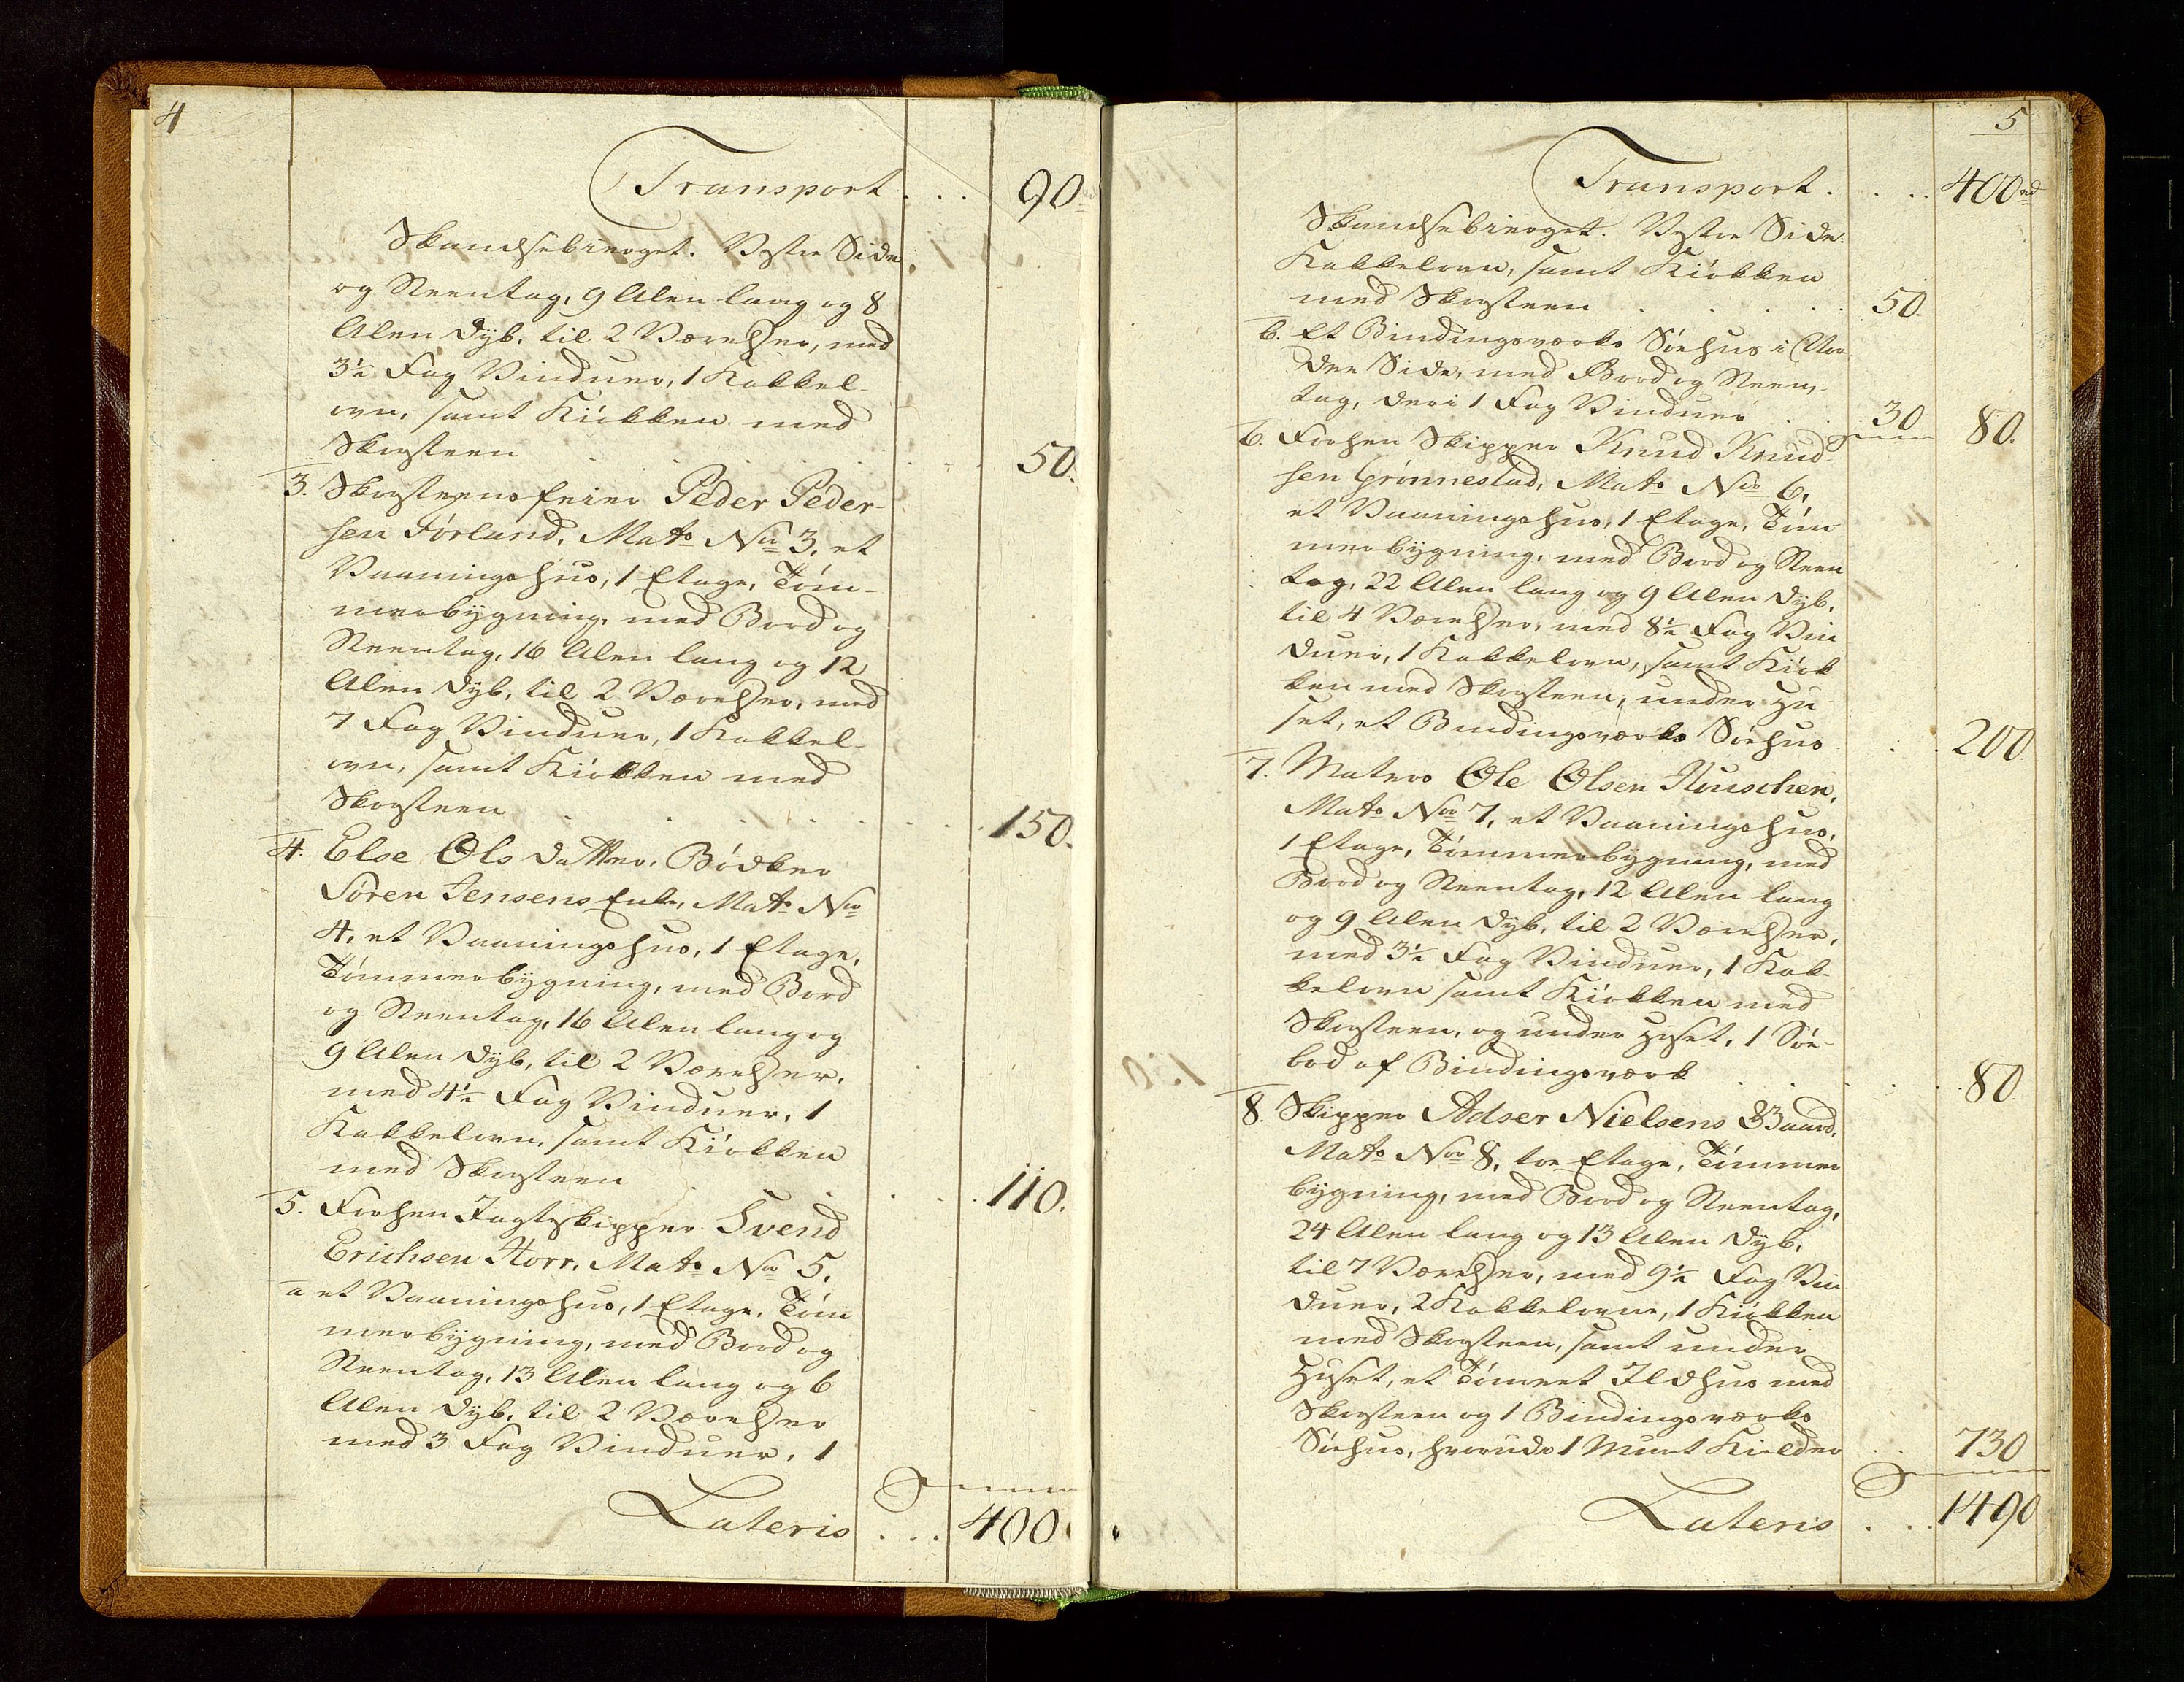 4
Transport . . . 90
Skandsebierget. Vestre Side
og Steentag, 9 Alen lang og 8
Alen dyb, til 2 Værelser, med
3½ Fag Vinduer, 1 Kakkel-
ovn, samt Kiökken med
Skorsteen . . . 50.
3. Skorsteensfeier Peder Peder-
sen Förland, Mats No 3, et
Vaaningshus, 1 Etage, Töm-
merbygning, med Bord og
Steentag, 16 Alen lang og 12
Alen dyb, til 2 Værelser, med
7 Fag Vinduer, 1 Kakkel-
ovn, samt Kiökken med
Skorsteen . . . 150.
4. Else Ols datter, Bödker
Sören Jensens Enke, Mats No
4, et Vaaningshus, 1 Etage,
Tömmerbygning, med Bord
og Steentag, 16 Alen lang og
9 Alen dyb, til 2 Værelser,
med 4½ Fag Vinduer, 1
Kakkelovn, samt Kiökken
med Skorsteen . . . 110.
5. Forhen Jagtskipper Svend
Erichsen Horr, Mats No 5,
a et Vaaningshus, 1 Etage, Töm
merbygning, med Bord og
Steentag, 13 Alen lang og 6
Alen dyb, til 2 Værelser
med 3 Fag Vinduer, 1
Lateris . . . 400
5
Transport . . . 400 rd
Skandsebierget. Vestre Side.
Kakkelovn, samt Kiökken
med Skorsteen . . . 50.
b. Et Bindingsværks Söehus i Nor
dre Side, med Bord og Steen-
tag, deri 1 Fag Vinduer . . 30 80.
6. Forhen Skipper Knud Knud-
sen Grönnestad, Mats No 6,
et Vaaningshus, 1 Etage, Töm
merbygning, med Bord og Steen
tag, 22 Alen lang og 9 Alen dyb,
til 4 Værelser, med 8½ Fag Vin
duer, 1 Kakkelovn, samt Kiök
ken med Skorsteen, under Hu
set, et Bindingsværks Söehus . . 200.
7. Matros Ole Olsen
Mats No 7, et Vaaningshus,
1 Etage, Tömmerbygning, med
Bord og Steentag, 12 Alen lang
og 9 Alen dyb, til 2 Værelser,
med 3½ Fag Vinduer, 1 Kak-
kelovn samt Kiökken med
Skorsteen, og under Huset, 1 Söe-
bod af Bindingsværk . . . 80.
8. Skipper Adser Nielsens Gaard,
Mats No 8, toe Etage, Tömmer
bygning, med Bord og Steentag,
24 Alen lang og 13 Alen dyb,
til 7 Værelser, med 9½ Fag Vin
duer, 2 Kakkelovne, 1 Kiökken
med Skorsteen, samt under
Huset, et Tömret Ildhus med
Skorsteen og 1 Bindingsværks
Söehus, hvorudi 1 Muret Kielder . . 730
Lateris . . . 1490